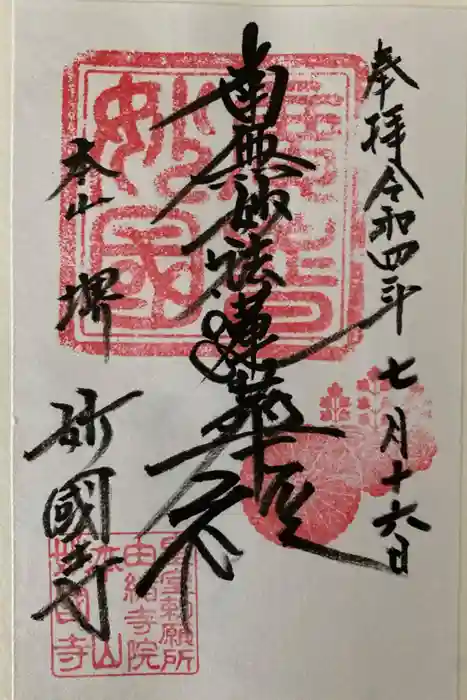 奉拝令和四年七月十六日
南無妙法蓮華経
本山
堺
妙國寺
妙國
皇室勅願所
由緒寺院
本山
妙國寺